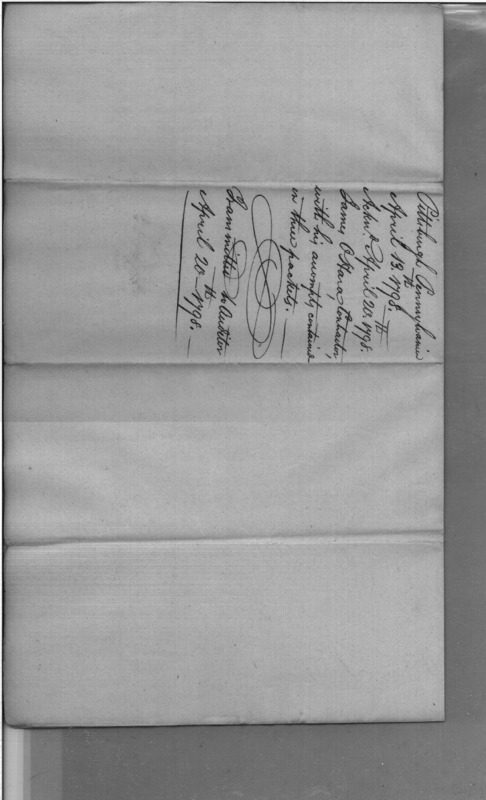 Pittsburgh Pennsylvania
April 13th 1798.
Ackn.d April 20th 1798.
James OHara, Contractor,
with his accompts, contained
in three packets.
Transmitted to Auditor
April 20th 1798.